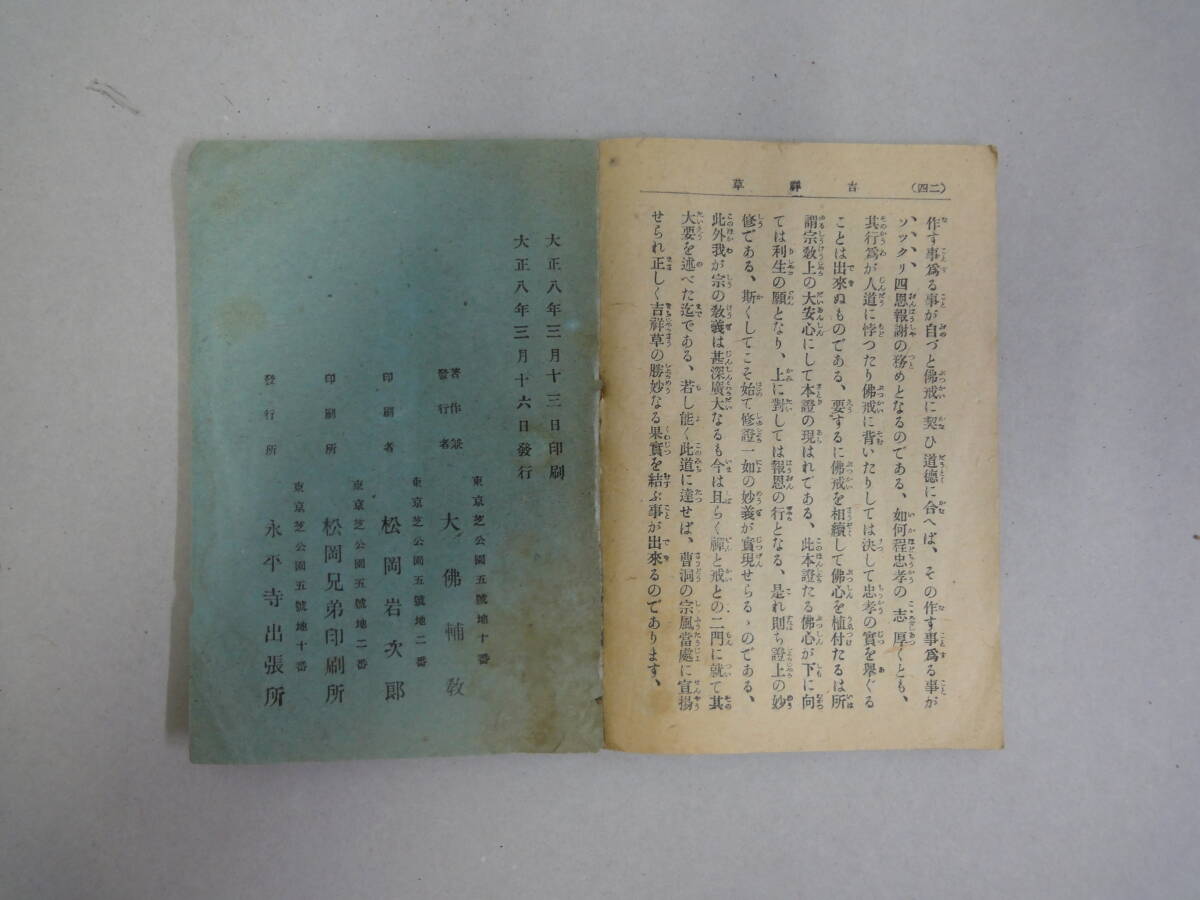 (二四)
吉祥草
作す事爲る事が自づと佛戒に契ひ道德に合へば、その作す事爲る事が
ソックリ四恩報謝の務めとなるのである、如何程忠孝の志厚くとも、
其行爲が人道に悖つたり佛戒に背いたりしては決して忠孝の實を擧ぐる
ことは出來ぬものである、要するに佛戒を相續して佛心を植付たるは所
謂宗敎上の大安心にして本證の現はれである、此本證たる佛心が下に向
ては利生の願となり、上に對しては報恩の行となる、是れ則ち證上の妙
修である、斯くしてこそ始て修證一如の妙義が實現せらるゝのである、
此外我が宗の敎義は甚深廣大なるも今は且らく禪と戒との二門に就て其
大要を述べた迄である、若し能く此道に達せば、曹洞の宗風當處に宣揚
せられ正しく吉祥草の勝妙なる果實を結ぶ事が出來るのであります、
大正八年三月十三日印刷
大正八年三月十六日發行
東京芝公園五號地十番
著作兼發行者 大佛輔敎
東京芝公園五號地二番
印刷者 松岡岩次郞
東京芝公園五號地二番
印刷所 松岡兄弟印刷所
東京芝公園五號地十番
發行所 永平寺出張所